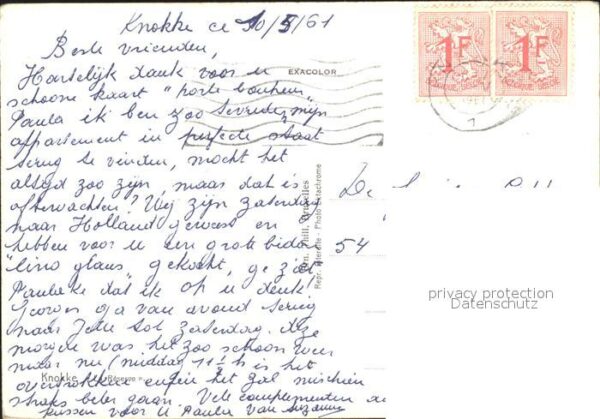 Knokke ce 10/5/61
Beste vrienden,
Hartelijk dank voor u
schoone kaart "porte bonheur"
Paula ik ben zoo tevreden, mijn
appartement in perfecte staat
terug te vinden, mocht het
altijd zoo zijn, maar dat is
afterwachten? Wij zijn zaterdag
naar Holland geweest en
hebben voor u een grote bidon
"lino glans" gekocht, ge ziet
Paulake dat ik op u denk!
Georges ga van avond terug
naar Jette tot zaterdag. Deze
morgen was het zoo schoon weer
maar nu (middag 1 1/2 h is het
overtrokken enfin het zal mischien
straks beter gaan. Vele complimenten
kussen voor u Paula van Suzanne
EXACOLOR
1F
1F
54
Repr. Interdite - Photo Datachrome
privacy protection
Datenschutz
Knokke